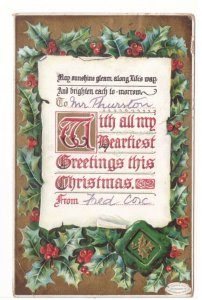 May sunshine gleam along Life's way
And brighten each to-morrow
To Mr. Thurston
With all my
Heartiest
Greetings this
Christmas.
From Fred Cox